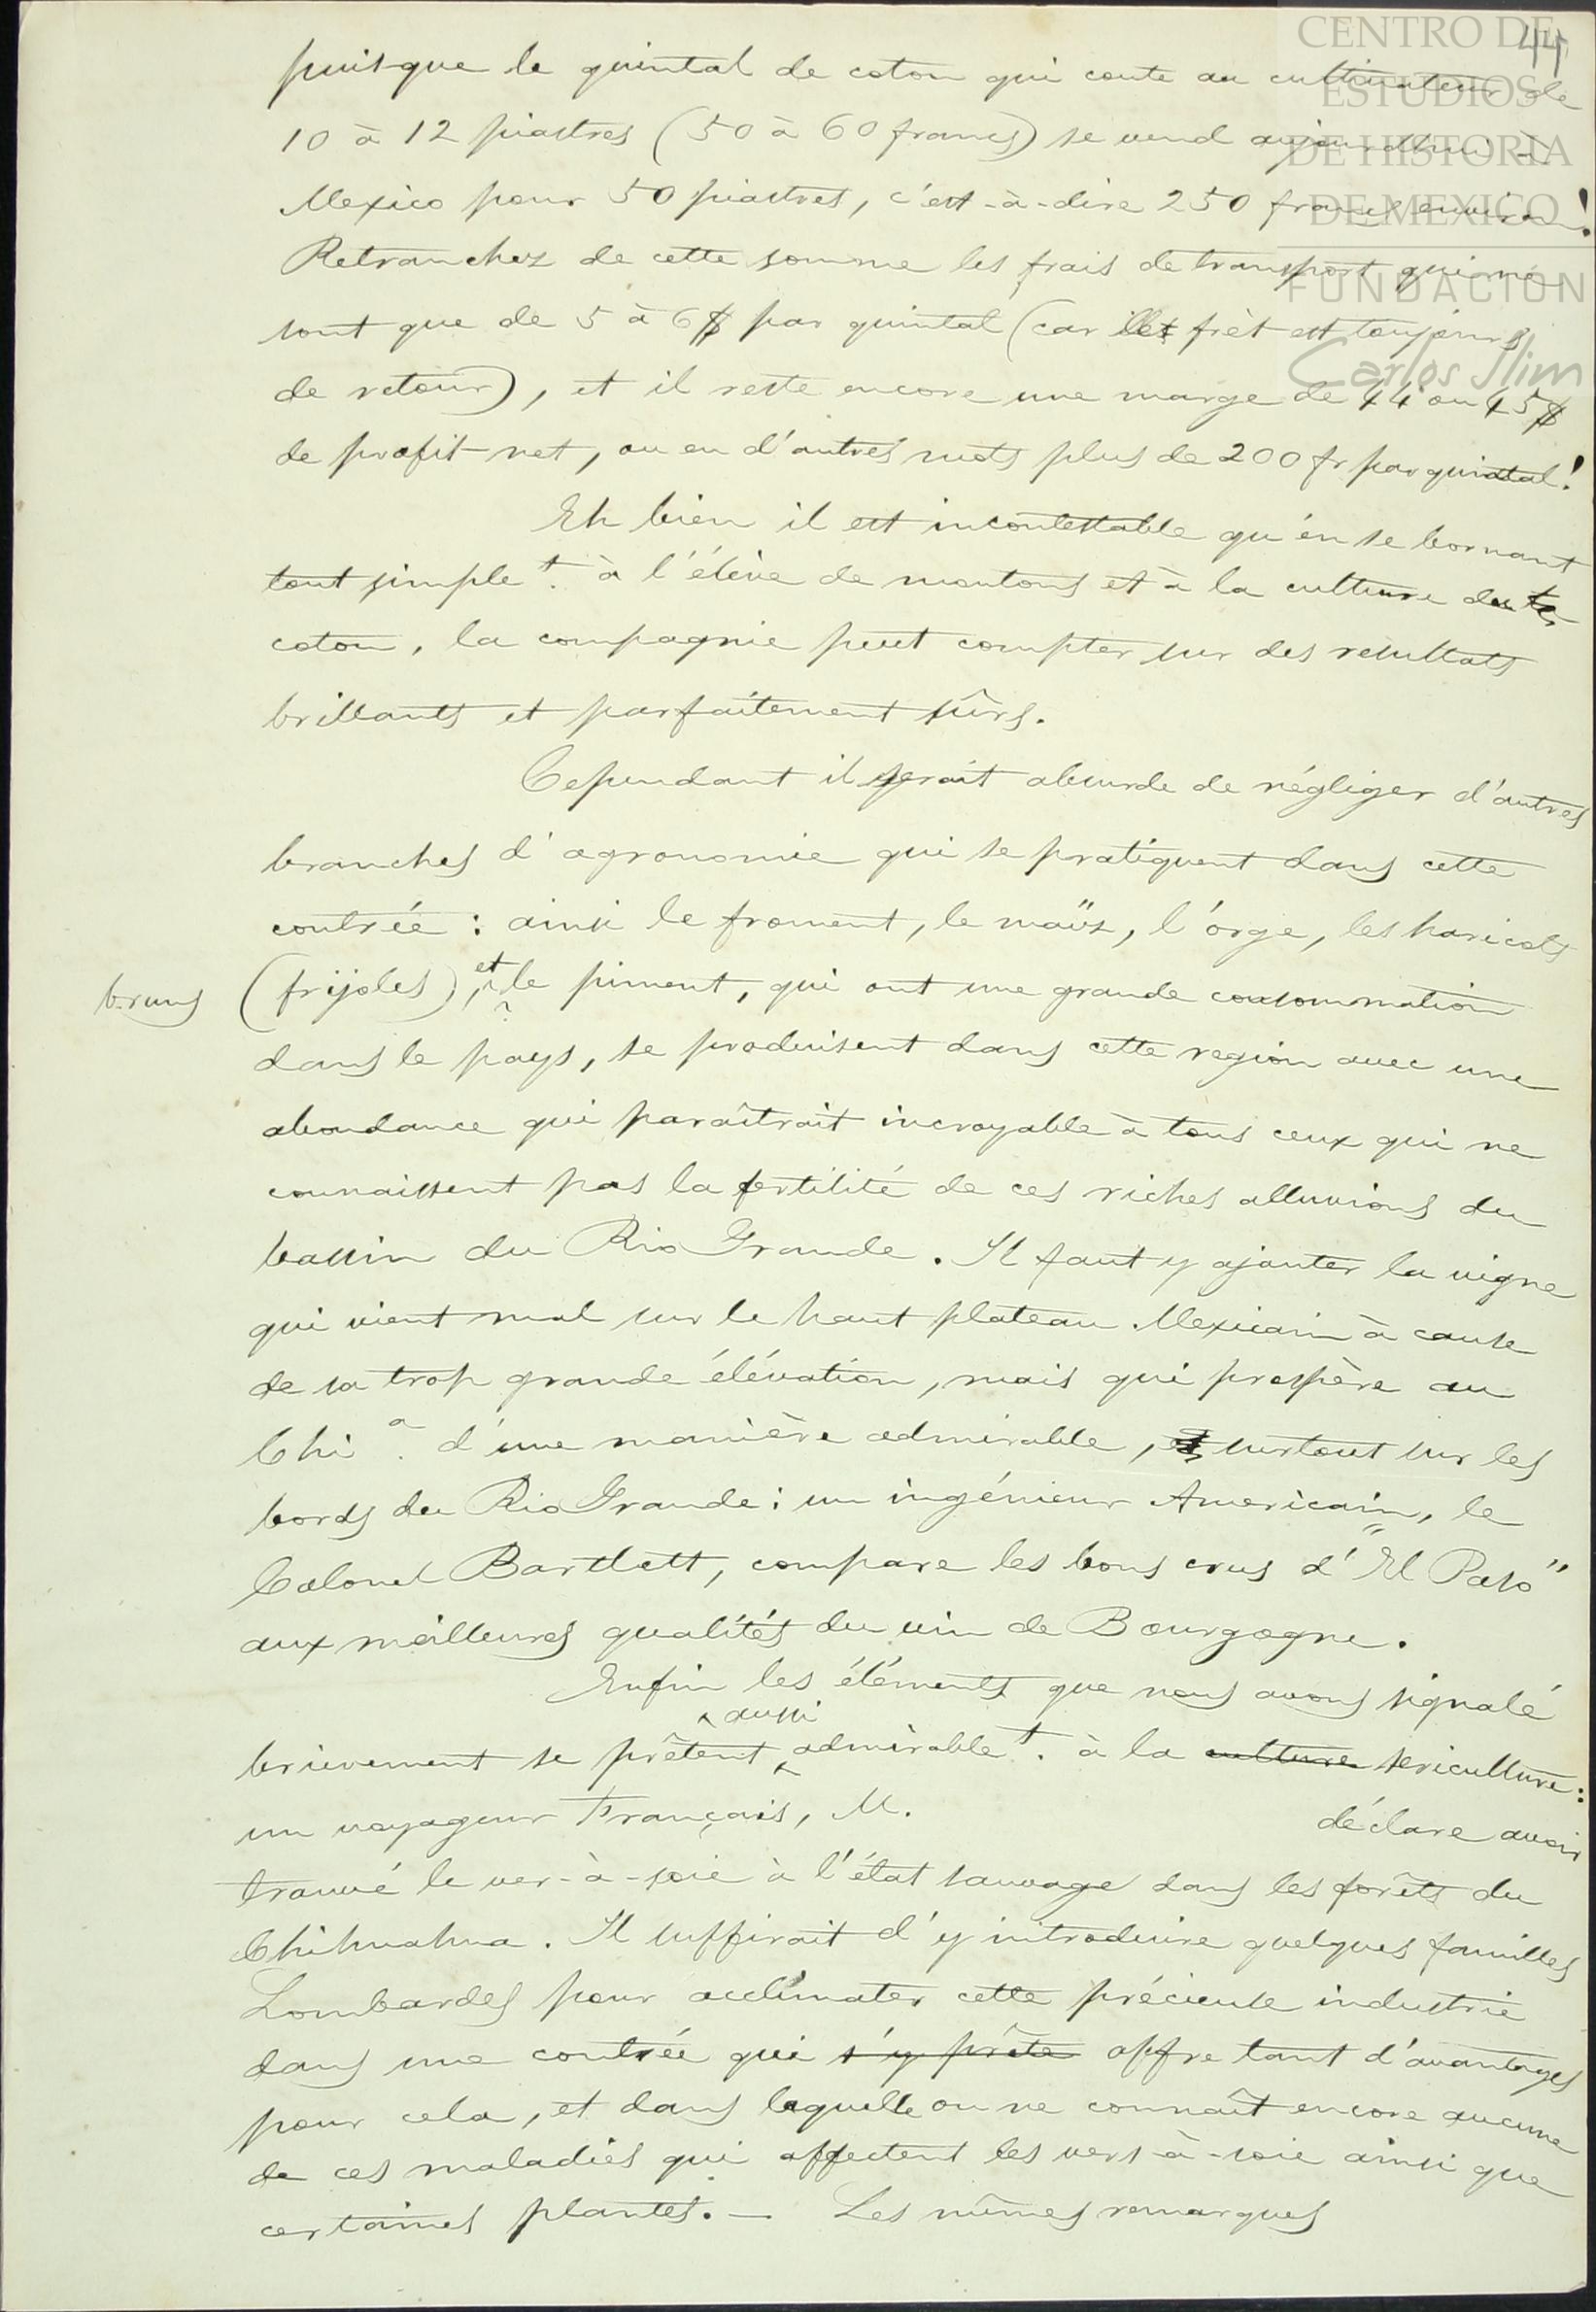 44
CENTRO DE
ESTUDIOS
DE HISTORIA
DE MEXICO
FUNDACION
Carlos Slim
puisque le quintal de coton qui coute au cultivateur de
10 à 12 piastres (50 à 60 francs) se vend aujourdhui à
Mexico pour 50 piastres, c'est-à-dire 250 francs environ!
Retranchez de cette somme les frais de transport qui ne
sont que de 5 à 6$ par quintal (car le frèt est toujours
de retour), et il reste encore une marge de 44 ou 45$
de profit-net, ou en d'autres mots plus de 200 fr par quintal!
Eh bien il est incontestable qu'en se bornant
tout simplet. à l'élève de moutons et à la culture du
coton, la compagnie peut compter sur des resultats
brillants et parfaitement sûrs.
Cependant il serait absurde de négliger d'autres
branches d'agronomie qui se pratiquent dans cette
contrée : ainsi le froment, le maïs, l'orge, les haricots
bruns (frijoles), et le piment, qui ont une grande consommation
dans le pays, se produisent dans cette region avec une
abondance qui paraîtrait incroyable à tous ceux qui ne
connaissent pas la fertilité de ces riches alluvions du
bassin du Rio Grande. Il faut y ajouter la vigne
qui vient mal sur le haut plateau Mexicain à cause
de sa trop grande élévation, mais qui prospère au
Chia. d'une manière admirable, et surtout sur les
bords du Rio Grande : un ingénieur Americain, le
Colonel Bartlett, compare les bons crus d'"El Paso"
aux meilleures qualités du vin de Bourgogne.
Enfin les éléments que nous avons signalé
brievement se prêtent aussi admirablet. à la culture sericulture :
un voyageur Français, M. déclare avoir
trouvé le ver-à-soie à l'état sauvage dans les forêts du
Chihuahua. Il suffirait d'y introduire quelques familles
Lombardes pour acclimater cette précieuse industrie
dans une contrée qui s'y prête offre tant d'avantages
pour cela, et dans laquelle on ne connaît encore aucune
de ces maladies qui affectent les vers-à-soie ainsi que
certaines plantes. — Les mêmes remarques